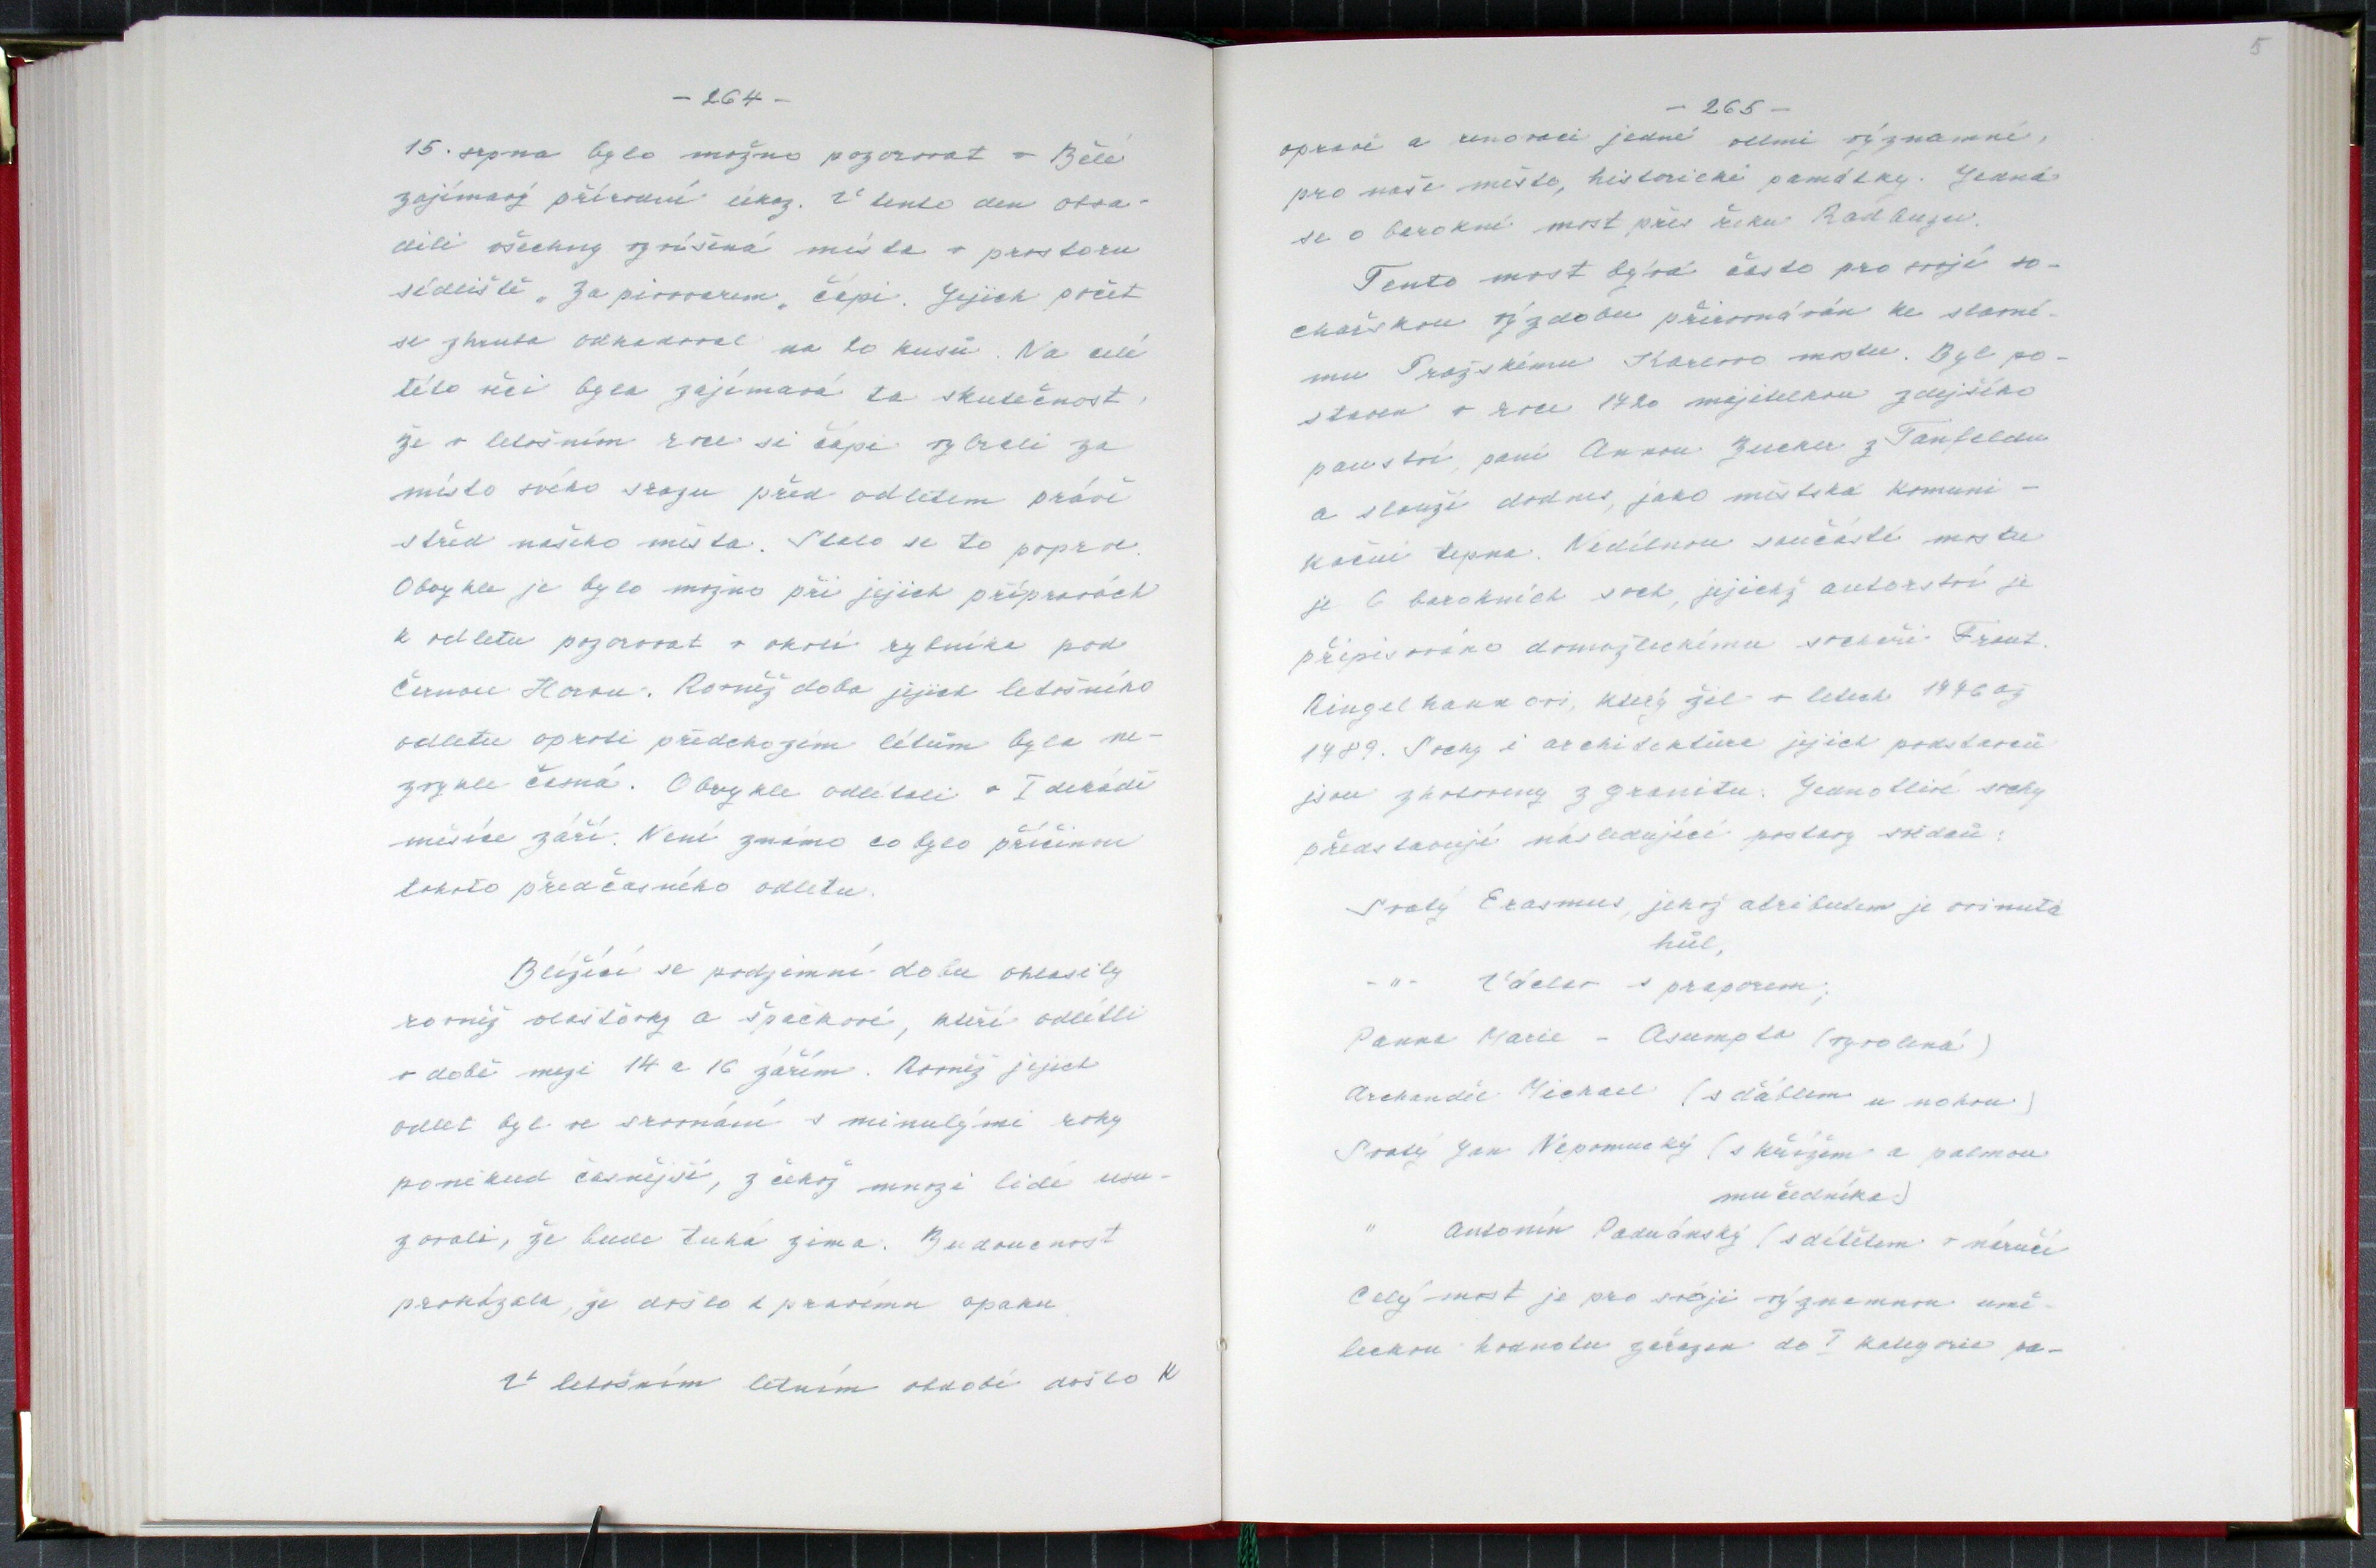 - 264 -
15. srpna bylo možno pozorovat v Bělé
zajímavý přírodní úkaz. V tento den obsa-
dili všechny vyvýšená místa v prostoru
sídliště „Za pivovarem„ čápi. Jejich počet
se zhruba odhadoval na 60 kusů. Na celé
této věci byla zajímavá ta skutečnost,
že v letošním roce si čápi vybrali za
místo svého srazu před odletem právě
střed našeho města. Stalo se to poprvé.
Obvykle je bylo možno při jejich přípravách
k odletu pozorovat v okolí rybníka pod
Černou Horou. Rovněž doba jejich letošního
odletu oproti předchozím létům byla ne-
zvykle časná. Obvykle odlétali v I dekádě
měsíce září. Není známo co bylo příčinou
tohoto předčasného odletu.
Blížící se podzimní dobu ohlásily
rovněž vlaštovky a špačkové, kteří odlétli
v době mezi 14 a 16 zářím. Rovněž jejich
odlet byl ve srovnání s minulými roky
poněkud časnější, z čehož mnozí lidé usu-
zovali, že bude tuhá zima. Budoucnost
prokázala, že došlo k pravému opaku.
V letošním letním období došlo k
5
- 265 -
opravě a renovaci jedné velmi významné,
pro naše město, historické památky. Jedná
se o barokní most přes řeku Radbuzu.
Tento most bývá často pro svojí so-
chařskou výzdobu přirovnáván ke slavné-
mu Pražskému Karlovo mostu. Byl po-
staven v roce 1720 majitelkou zdejšího
panství, paní Annou Zucker z Tanfeldu
a slouží dodnes, jako městská komuni-
kační tepna. Nedílnou součástí mostu
je 6 barokních soch, jejichž autorství je
připisováno domažlickému sochaři Frant.
Ringelhannovi, který žil v letech 1776 až
1789. Sochy i architektúra jejich podstavců
jsou zhotoveny z granitu. Jednotlivé sochy
představují následující postavy světců:
Svatý Erasmus, jehož atributem je ovinutá
hůl,
-"- Václav s praporem,
Panna Marie - Asumpta (vyvolená)
Archanděl Michael (s ďáblem u nohou)
Svatý Jan Nepomucký (s křížem a palmou
mučedníka)
" Antonín Paduánský (s dítětem v náručí
Celý most je pro svoji významnou umě-
leckou hodnotu zařazen do I kategorie pa-